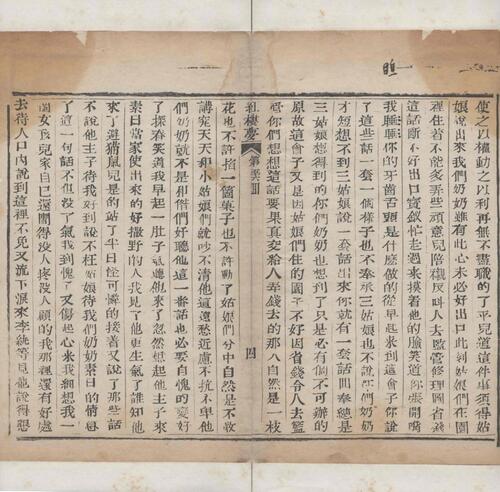 瞧
使之以權動之以利再無不盡職的了平兒道這件事須得姑
娘說出來我們奶奶雖有此心未必好出口此刻姑娘們在園
裡住着不能多弄些頑意兒陪襯反叫人去監管修理圖省錢
這話斷不好出口寶釵忙走過來摸着他的臉笑道你張開嘴
我瞧瞧你的牙齒舌頭是什麼做的從早起來到這會子你說
了這些話一套一個樣子也不奉承三姑娘也不說你們奶奶
才短想不到三姑娘說一套話出來你就有一套話回奉總是
三姑娘想得到的你們奶奶也想到了只是必有個不可辦的
原故這會子又是因姑娘們住的園子不好因省錢令人去監
管你們想想這話要果真交給人弄錢去的那人自然是一枝
紅樓夢 第 回 四
花也不許掐一個菓子也不許動了姑娘們分中自然是不敢
講究天天和小姑娘們就吵不清他這遠愁近慮不抗不卑他
們奶奶就不是和偺們好聽他這一番話也必要自愧的變好
了探春笑道我早起一肚子氣聽他來了忽然想起他主子來
素日當家使出來的好撒野的人我見了他更生氣了誰知他
來了避猫鼠兒是的站了半日怪可憐的接著又說了那些話
不說他主子待我好到說不枉姑娘待我們奶奶素日的情意
了這一句話不但沒了氣我到愧了又傷起心來我細想我一
個女孩兒家自己還鬧得沒人疼沒人顧的我那裡還有好處
去待人口內說到這裡不免又流下淚來李紈等見他說得懇